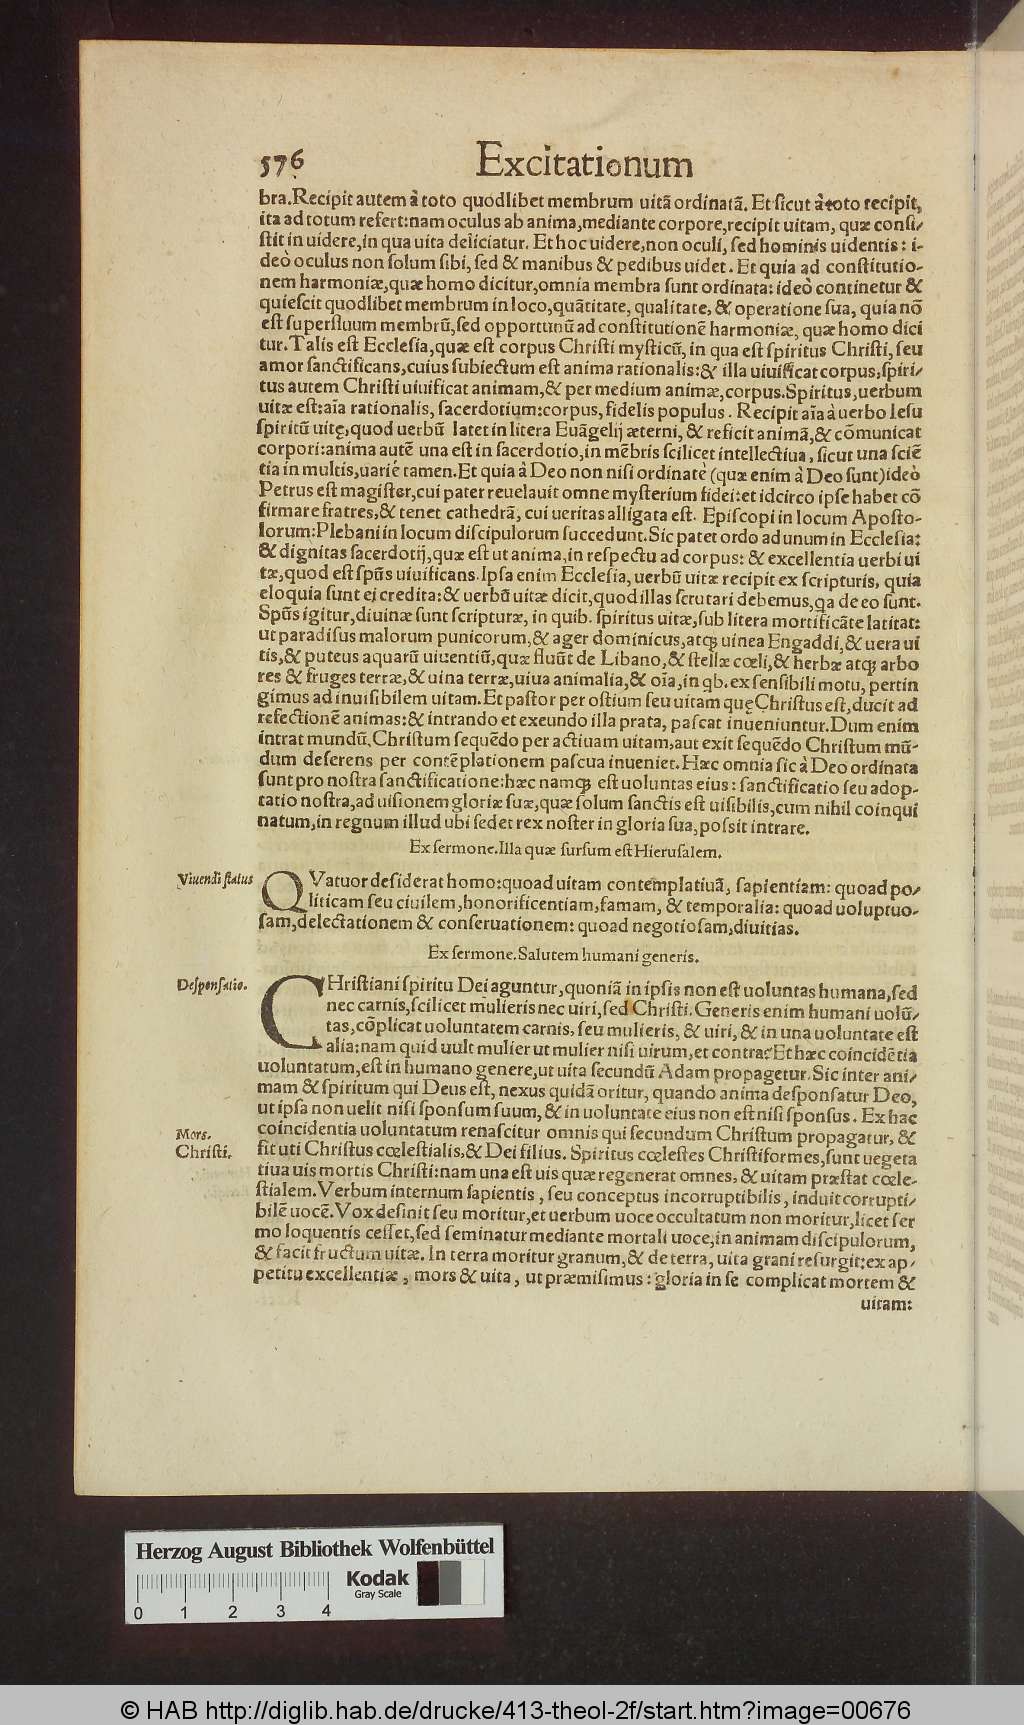 576 Excitationum
bra. Recipit autem à toto quodlibet membrum uitã ordinatã. Et sicut à toto recipit,
ita ad totum refert: nam oculus ab anima, mediante corpore, recipit uitam, quæ consi/
stit in uidere, in qua uita deliciatur. Et hoc uidere, non oculi, sed hominis uidentis: i-
deò oculus non solum sibi, sed & manibus & pedibus uidet. Et quia ad constitutio-
nem harmoniæ, quæ homo dicitur, omnia membra sunt ordinata: ideò continetur &
quiescit quodlibet membrum in loco, quãtitate, qualitate, & operatione sua, quia nõ
est superfluum membrũ, sed opportunũ ad constitutionẽ harmoniæ, quæ homo dici
tur. Talis est Ecclesia, quæ est corpus Christi mysticũ, in qua est spiritus Christi, seu
amor sanctificans, cuius subiectum est anima rationalis: & illa uiuificat corpus, spiri/
tus autem Christi uiuificat animam, & per medium animæ, corpus. Spiritus, uerbum
uitæ est: aĩa rationalis, sacerdotium: corpus, fidelis populus. Recipit aĩa à uerbo Iesu
spiritũ uitę, quod uerbũ latet in litera Euãgelij æterni, & reficit animã, & cõmunicat
corpori: anima autẽ una est in sacerdotio, in mẽbris scilicet intellectiua, sicut una sciẽ
tia in multis, uariè tamen. Et quia à Deo non nisi ordinatè (quæ enim à Deo sunt) ideò
Petrus est magister, cui pater reuelauit omne mysterium fidei: et idcirco ipse habet cõ
firmare fratres, & tenet cathedrã, cui ueritas alligata est. Episcopi in locum Aposto-
lorum: Plebani in locum discipulorum succedunt. Sic patet ordo ad unum in Ecclesia:
& dignitas sacerdotij, quæ est ut anima, in respectu ad corpus: & excellentia uerbi ui
tæ, quod est spũs uiuificans. Ipsa enim Ecclesia, uerbũ uitæ recipit ex scripturis, quia
eloquia sunt ei credita: & uerbũ uitæ dicit, quod illas scrutari debemus, qa de eo sunt.
Spũs igitur, diuinæ sunt scripturæ, in quib. spiritus uitæ, sub litera mortificãte latitat:
ut paradisus malorum punicorum, & ager dominicus, atq; uinea Engaddi, & uera ui
tis, & puteus aquarũ uiuentiũ, quæ fluũt de Libano, & stellæ cœli, & herbæ atq; arbo
res & fruges terræ, & uina terræ, uiua animalia, & oĩa, in qb. ex sensibili motu, pertin
gimus ad inuisibilem uitam. Et pastor per ostium seu uitam quę Christus est, ducit ad
refectionẽ animas: & intrando et exeundo illa prata, pascat inueniuntur. Dum enim
intrat mundũ, Christum sequẽdo per actiuam uitam, aut exit sequẽdo Christum mũ-
dum deserens per contẽplationem pascua inueniet. Hæc omnia sic à Deo ordinata
sunt pro nostra sanctificatione: hæc namq; est uoluntas eius: sanctificatio seu adop-
tatio nostra, ad uisionem gloriæ suæ, quæ solum sanctis est uisibilis, cum nihil coinqui
natum, in regnum illud ubi sedet rex noster in gloria sua, possit intrare.
Ex sermone. Illa quæ sursum est Hierusalem.
Viuendi status
QVatuor desiderat homo: quoad uitam contemplatiuã, sapientiam: quoad po/
liticam seu ciuilem, honorificentiam, famam, & temporalia: quoad uoluptuo-
sam, delectationem & conseruationem: quoad negotiosam, diuitias.
Ex sermone. Salutem humani generis.
Desponsatio.
CHristiani spiritu Dei aguntur, quoniã in ipsis non est uoluntas humana, sed
nec carnis, scilicet mulieris nec uiri, sed Christi. Generis enim humani uolũ/
tas, cõplicat uoluntatem carnis, seu mulieris, & uiri, & in una uoluntate est
alia: nam quid uult mulier ut mulier nisi uirum, et contra? Et hæc coincidẽtia
uoluntatum, est in humano genere, ut uita secundũ Adam propagetur. Sic inter ani/
mam & spiritum qui Deus est, nexus quidã oritur, quando anima desponsatur Deo,
ut ipsa non uelit nisi sponsum suum, & in uoluntate eius non est nisi sponsus. Ex hac
Mors.
Christi.
coincidentia uoluntatum renascitur omnis qui secundum Christum propagatur, &
fit uti Christus cœlestialis, & Dei filius. Spiritus cœlestes Christiformes, sunt uegeta
tiua uis mortis Christi: nam una est uis quæ regenerat omnes, & uitam præstat cœle-
stialem. Verbum internum sapientis, seu conceptus incorruptibilis, induit corrupti/
bilẽ uocẽ. Vox desinit seu moritur, et uerbum uoce occultatum non moritur, licet ser
mo loquentis cesset, sed seminatur mediante mortali uoce, in animam discipulorum,
& facit fructum uitæ. In terra moritur granum, & de terra, uita grani resurgit: ex ap/
petitu excellentiæ, mors & uita, ut præmisimus: gloria in se complicat mortem &
uitam:
Herzog August Bibliothek Wolfenbüttel
Kodak
Gray Scale
0 1 2 3 4
© HAB http://diglib.hab.de/drucke/413-theol-2f/start.htm?image=00676